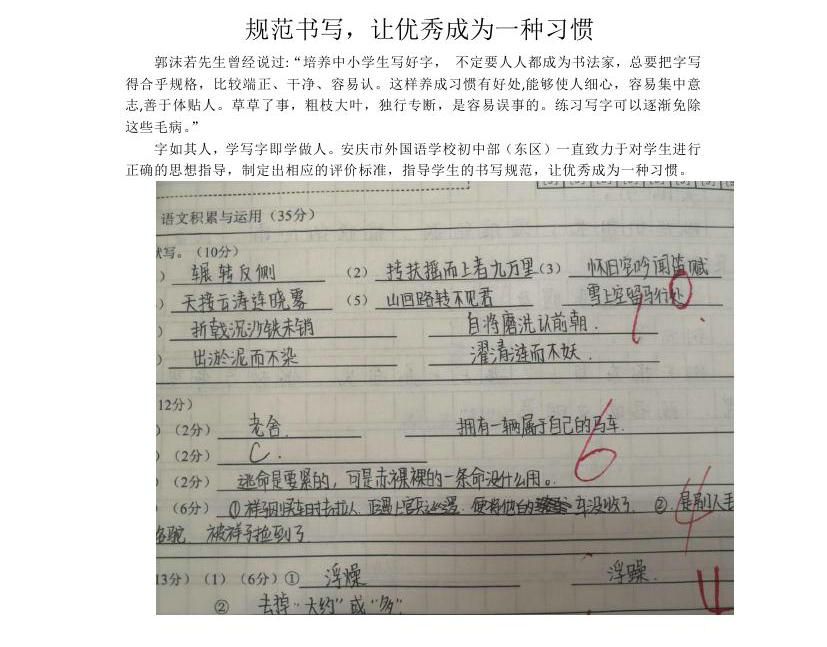 规范书写，让优秀成为一种习惯
郭沫若先生曾经说过:“培养中小学生写好字， 不定要人人都成为书法家，总要把字写
得合乎规格，比较端正、干净、容易认。这样养成习惯有好处,能够使人细心，容易集中意
志,善于体贴人。草草了事，粗枝大叶，独行专断，是容易误事的。练习写字可以逐渐免除
这些毛病。”
字如其人，学写字即学做人。安庆市外国语学校初中部（东区）一直致力于对学生进行
正确的思想指导，制定出相应的评价标准，指导学生的书写规范，让优秀成为一种习惯。
语文积累与运用（35分）
写。（10分）
） 辗转反侧 （2） 抟扶摇而上者九万里 （3） 怀旧空吟闻笛赋
） 天接云涛连晓雾 （5） 山回路转不见君 雪上空留马行处
） 折戟沉沙铁未销 自将磨洗认前朝.
） 出淤泥而不染 濯清涟而不妖.
10.
12分）
）（2分） 老舍. 拥有一辆属于自己的马车.
）（2分） C.
（2分） 逃命是要紧的，可是赤裸裸的一条命没什么用。.
6
（6分） ①祥子 拉车时去拉人. 正遇上官兵 便将他的 车没收了. ②.是别人丢
骆驼 被祥子捡到了
4
13分）（1）（6分）① 浮燥 浮躁.
② 去掉“大约”或“多”.
4